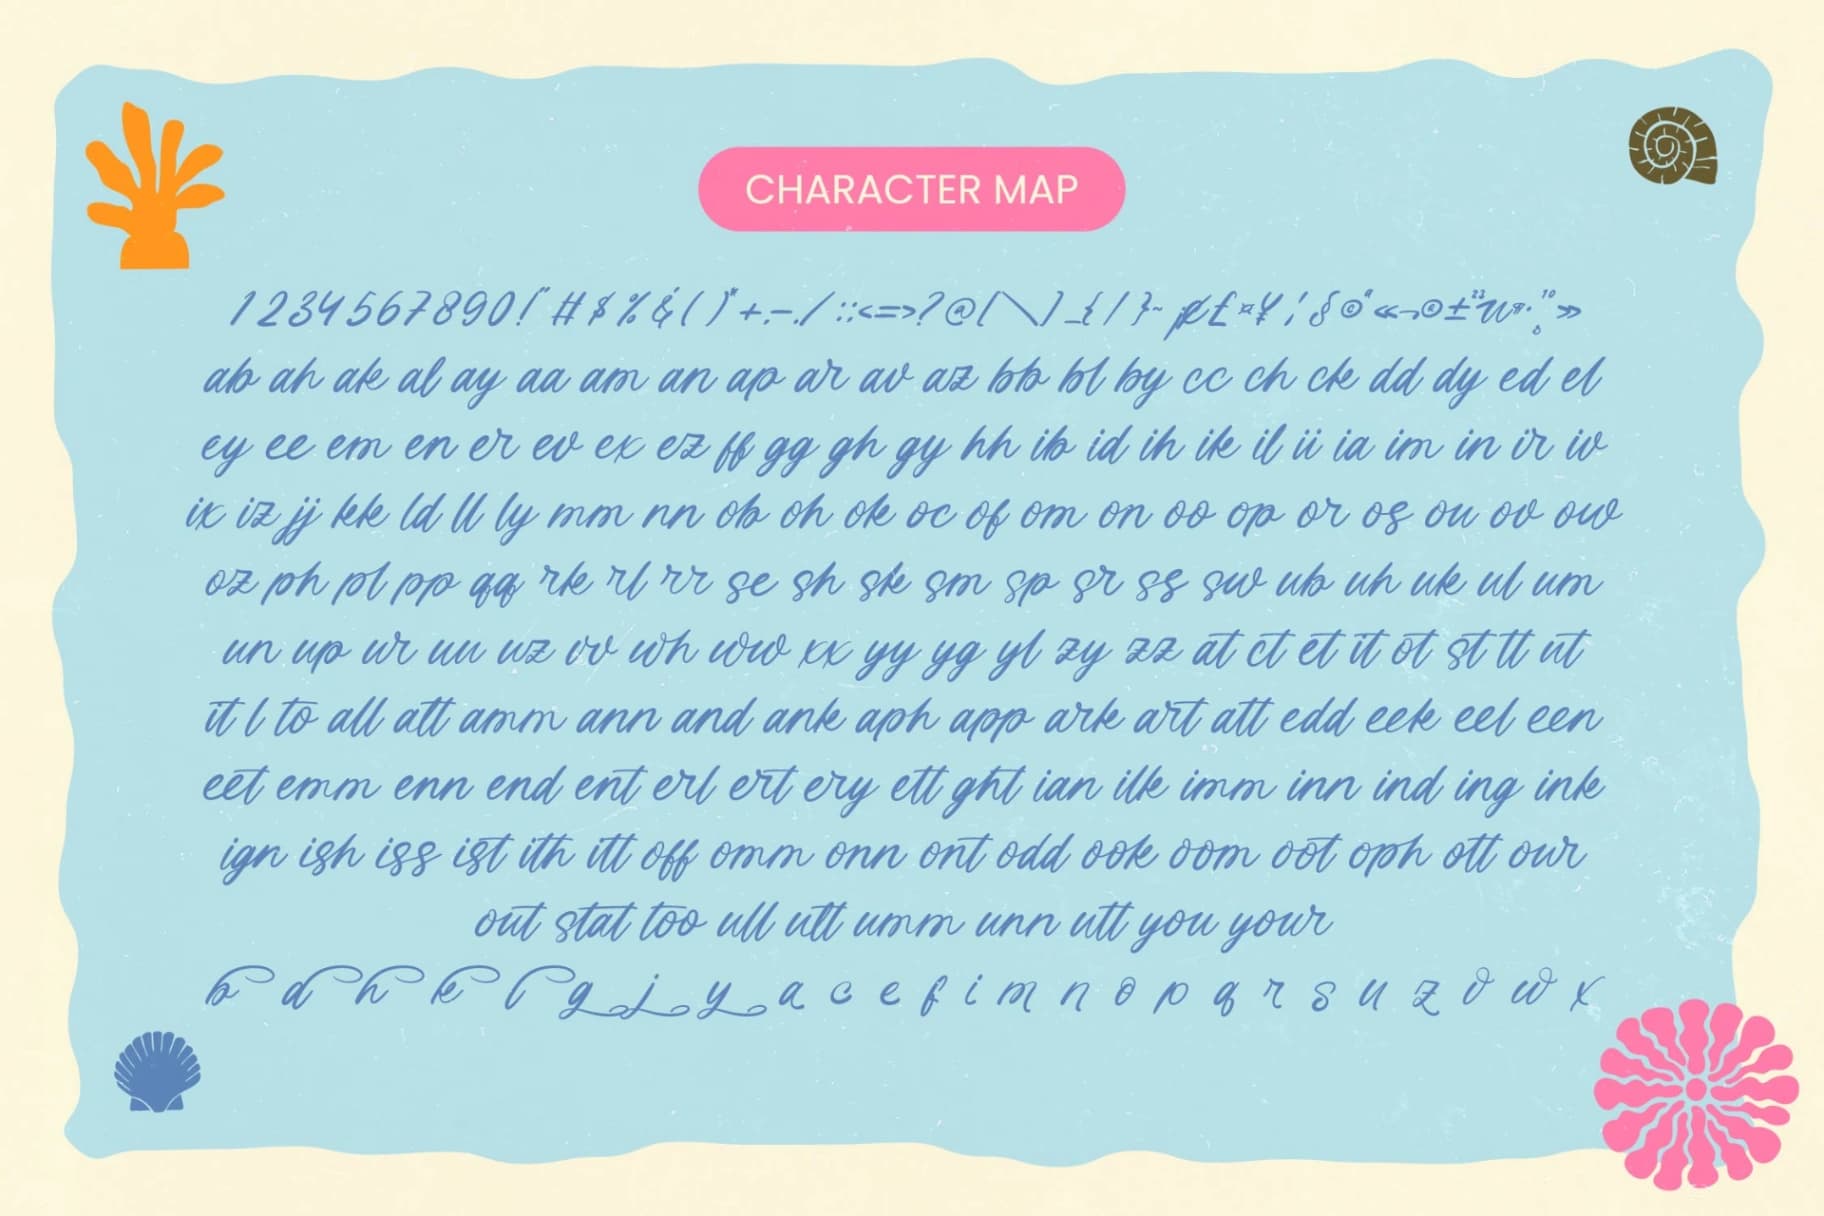 CHARACTER MAP
1234567890!"#$%&'()*+,-./:;<=>?@[\]_{|}~¢£¤¥¦§©ª«¬®±²³µ¶·¸¹º»
ab ah ak al ay aa am an ap ar av az bb bl by cc ch ck dd dy ed el
ey ee em en er ev ex ez ff gg gh gy hh ib id ih ik il ii ia im in ir iv
ix iz jj kk ld ll ly mm nn ob oh ok oc of om on oo op or os ou ov ow
oz ph pl pp qq rk rl rr se sh sk sm sp sr ss sw ub uh uk ul um
un up ur uu uz vv wh ww xx yy yg yl zy zz at ct et it ot st tt ut
it l to all att amm ann and ank aph app ark art att edd eek eel een
eet emm enn end ent erl ert ery ett ght ian ilk imm inn ind ing ink
ign ish iss ist ith itt off omm onn ont odd ook oom oot oph ott our
out stat too ull ult umm unn utt you your
b d h k l g j y a c e f i m n o p q r s u z v w x